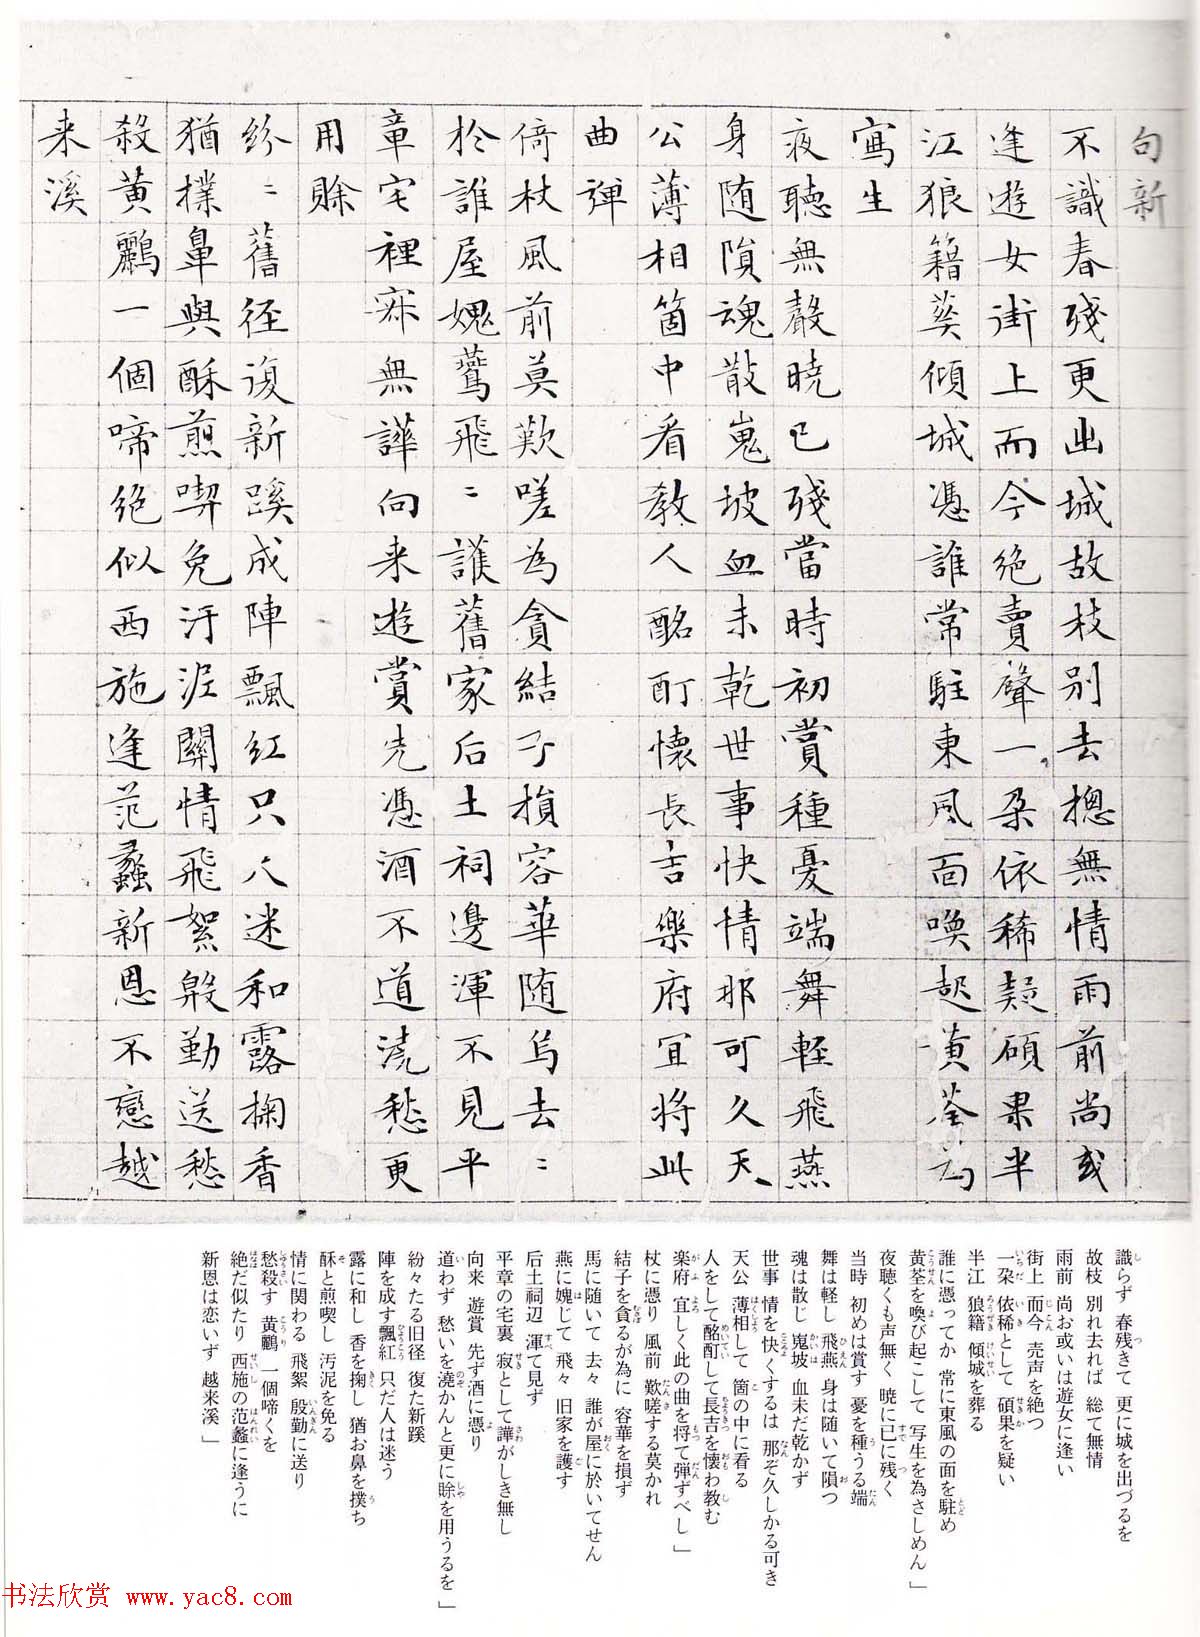 句新
不識春残更出城故枝別去摠無情雨前尚或
逢遊女街上而今絶賣聲一朶依稀疑碩果半
江狼籍葬傾城憑誰常駐東風面喚起黄荃為
寫生
夜聽無聲曉已残當時初賞種憂端舞軽飛燕
身随隕魂散嵬坡血未乾世事快情那可久天
公薄相箇中看教人酩酊懐長吉樂府宜将此
曲弾
倚杖風前莫歎嗟為貪結子損容華随馬去〻
於誰屋媿鷰飛〻護舊家后土祠邊渾不見平
章宅裡寂無譁向来遊賞先憑酒不道澆愁更
用賒
紛〻舊径復新蹊成陣飄紅只人迷和露掬香
猶撲鼻與酥煎喫免汙泥關情飛絮慇勤送愁
殺黄鸝一個啼絶似西施逢范蠡新恩不戀越
来溪
識らず 春残きて 更に城を出づるを
故枝 別れ去れば 総て無情
雨前 尚お或いは遊女に逢い
街上 而今 売声を絶つ
一朶 依稀として 碩果を疑い
半江 狼籍 傾城を葬る
誰に憑ってか 常に東風の面を駐め
黄荃を喚び起こして 写生を為さしめん」
夜聴くも声無く 暁に已に残く
当時 初めは賞す 憂を種うる端
舞は軽し 飛燕 身は随いて隕つ
魂は散じ 嵬坡 血未だ乾かず
世事 情を快くするは 那ぞ久しかる可き
天公 薄相して 箇の中に看る
人をして酩酊して長吉を懐わ教む
楽府 宜しく此の曲を将て弾ずべし」
杖に憑り 風前 歎嗟する莫かれ
結子を貪るが為に 容華を損ず
馬に随いて 去々 誰が屋に於いてせん
燕に媿じて 飛々 旧家を護す
后土祠辺 渾て見ず
平章の宅裏 寂として譁がしき無し
向来 遊賞 先ず酒に憑り
道わず 愁いを澆かんと更に賒を用うるを」
紛々たる旧径 復た新蹊
陣を成す飄紅 只だ人は迷う
露に和し 香を掬し 猶お鼻を撲ち
酥と煎喫し 汚泥を免る
情に関わる 飛絮 殷勤に送り
愁殺す 黄鸝 一個啼くを
絶だ似たり 西施の范蠡に逢うに
新恩は恋いず 越来溪」
书法欣赏 www.yac8.com